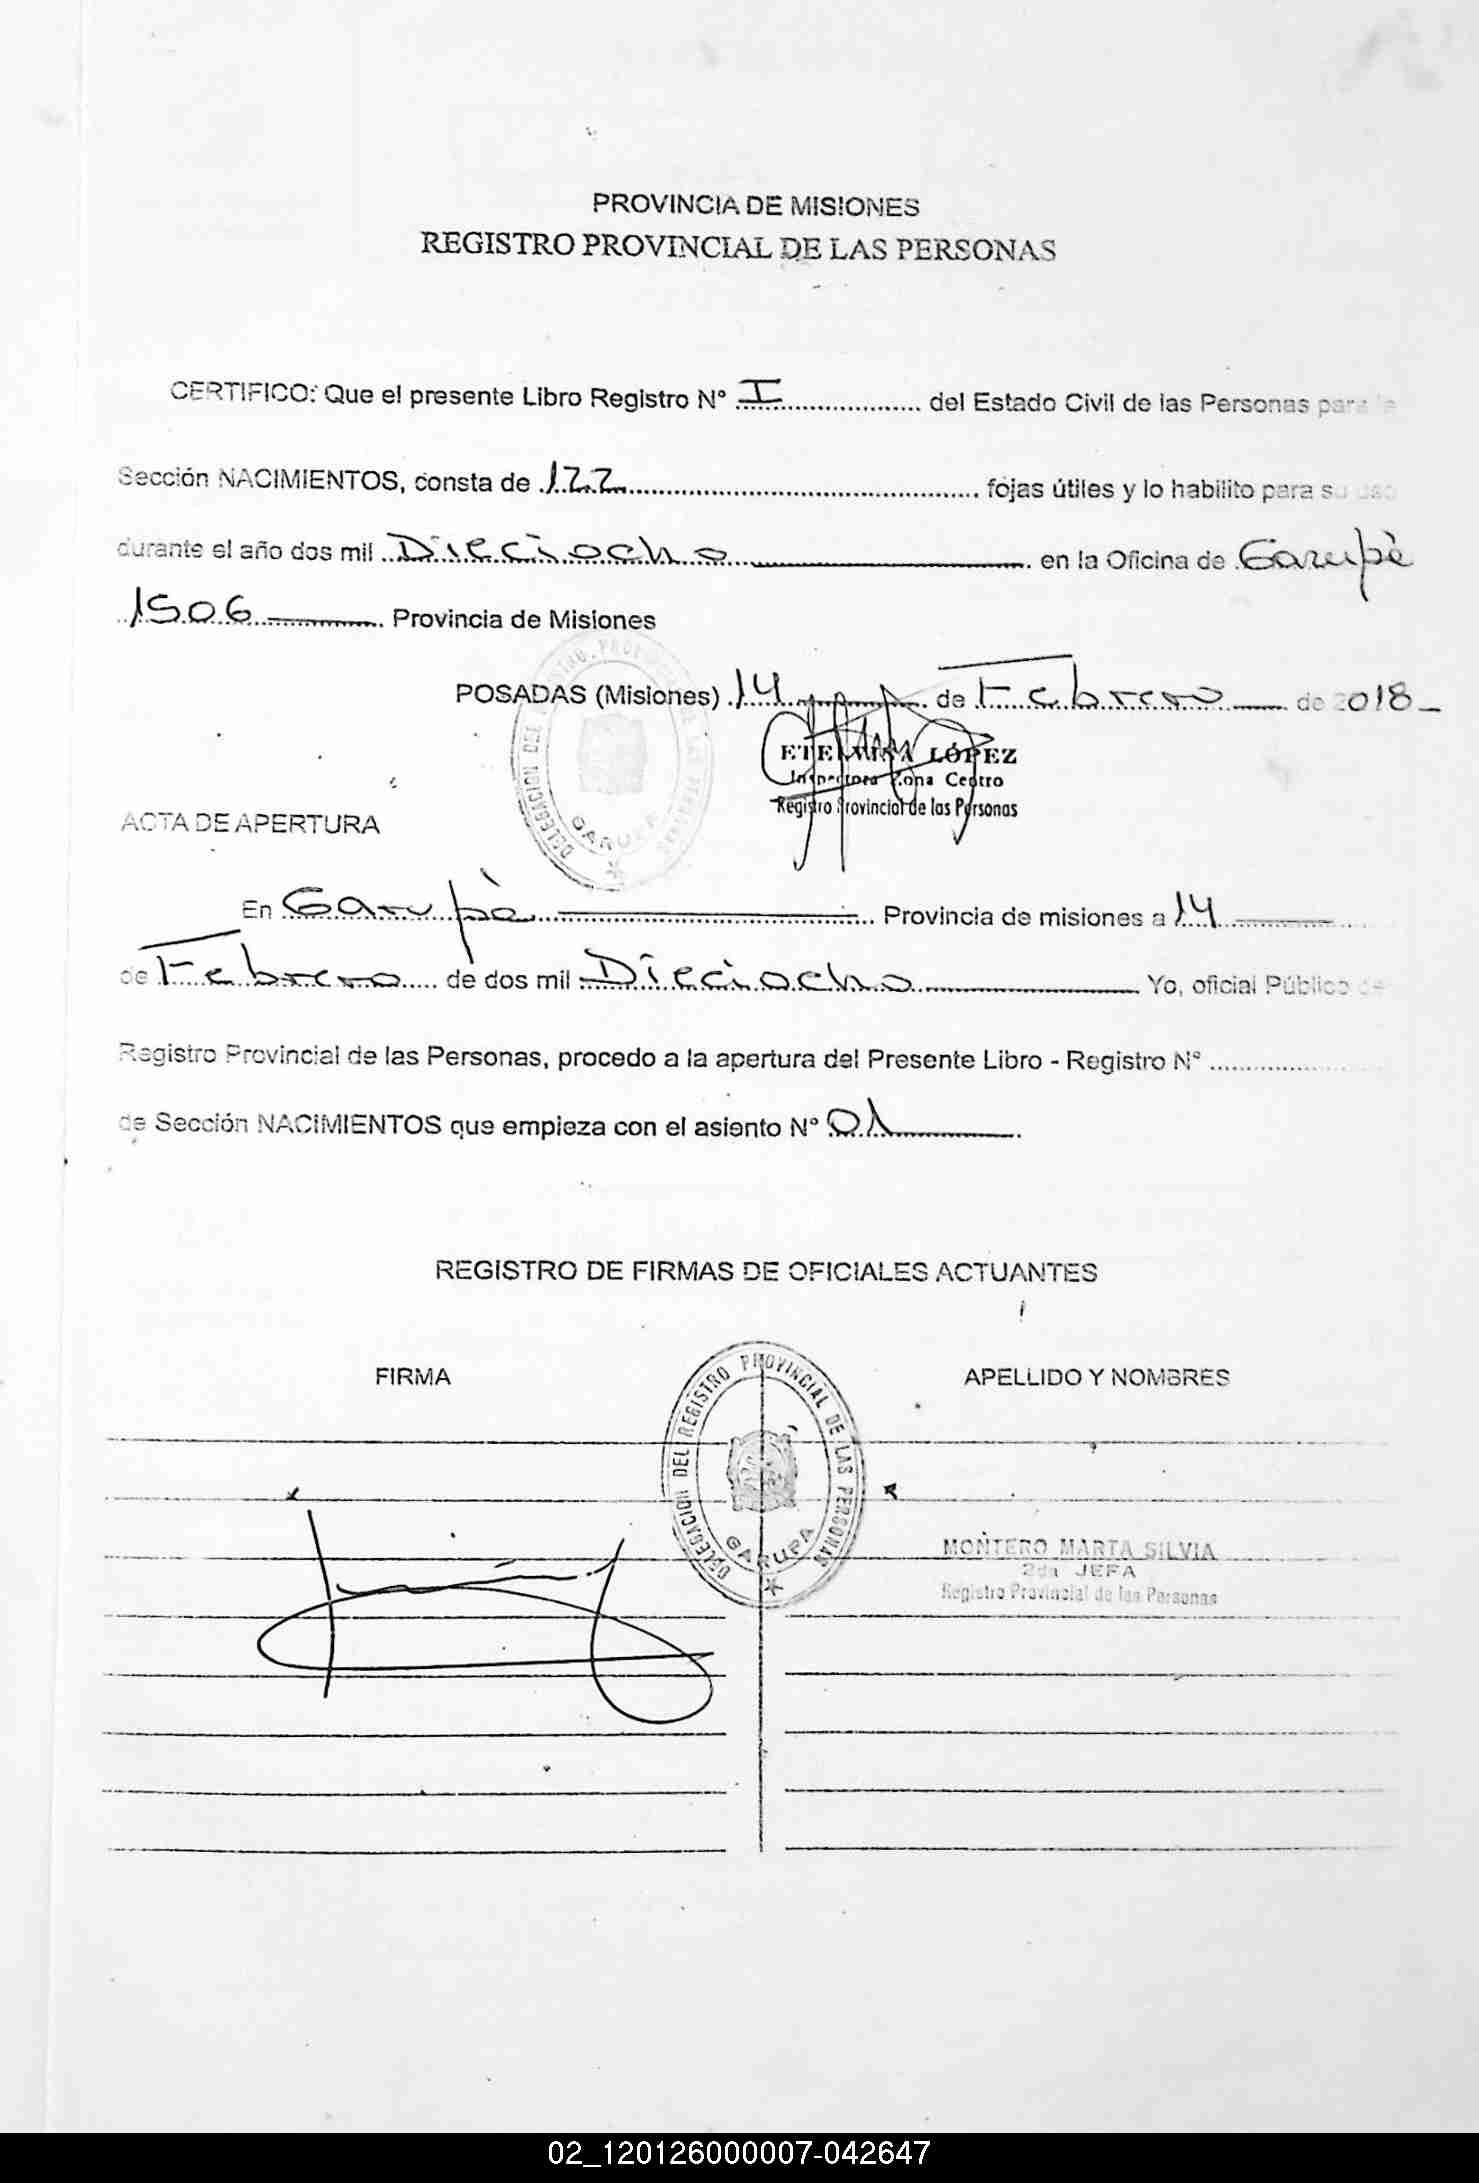 PROVINCIA DE MISIONES
REGISTRO PROVINCIAL DE LAS PERSONAS
CERTIFICO: Que el presente Libro Registro N° I del Estado Civil de las Personas para la
Sección NACIMIENTOS, consta de 122 fojas útiles y lo habilito para su uso
durante el año dos mil Dieciocho en la Oficina de Garupè
1506 Provincia de Misiones
POSADAS (Misiones) 14 de Febrero de 2018
ETELVINA LÓPEZ
Inspectora Zona Centro
Registro Provincial de las Personas
DELEGACION DEL REGISTRO PROVINCIAL DE LAS PERSONAS
GARUPA
ACTA DE APERTURA
En Garupè Provincia de misiones a 14
de Febrero de dos mil Dieciocho Yo, oficial Público de
Registro Provincial de las Personas, procedo a la apertura del Presente Libro - Registro N°
de Sección NACIMIENTOS que empieza con el asiento N° 01
REGISTRO DE FIRMAS DE OFICIALES ACTUANTES
FIRMA APELLIDO Y NOMBRES
DELEGACION DEL REGISTRO PROVINCIAL DE LAS PERSONAS
GARUPA
MONTERO MARTA SILVIA
2da JEFA
Registro Provincial de las Personas
02_120126000007-042647